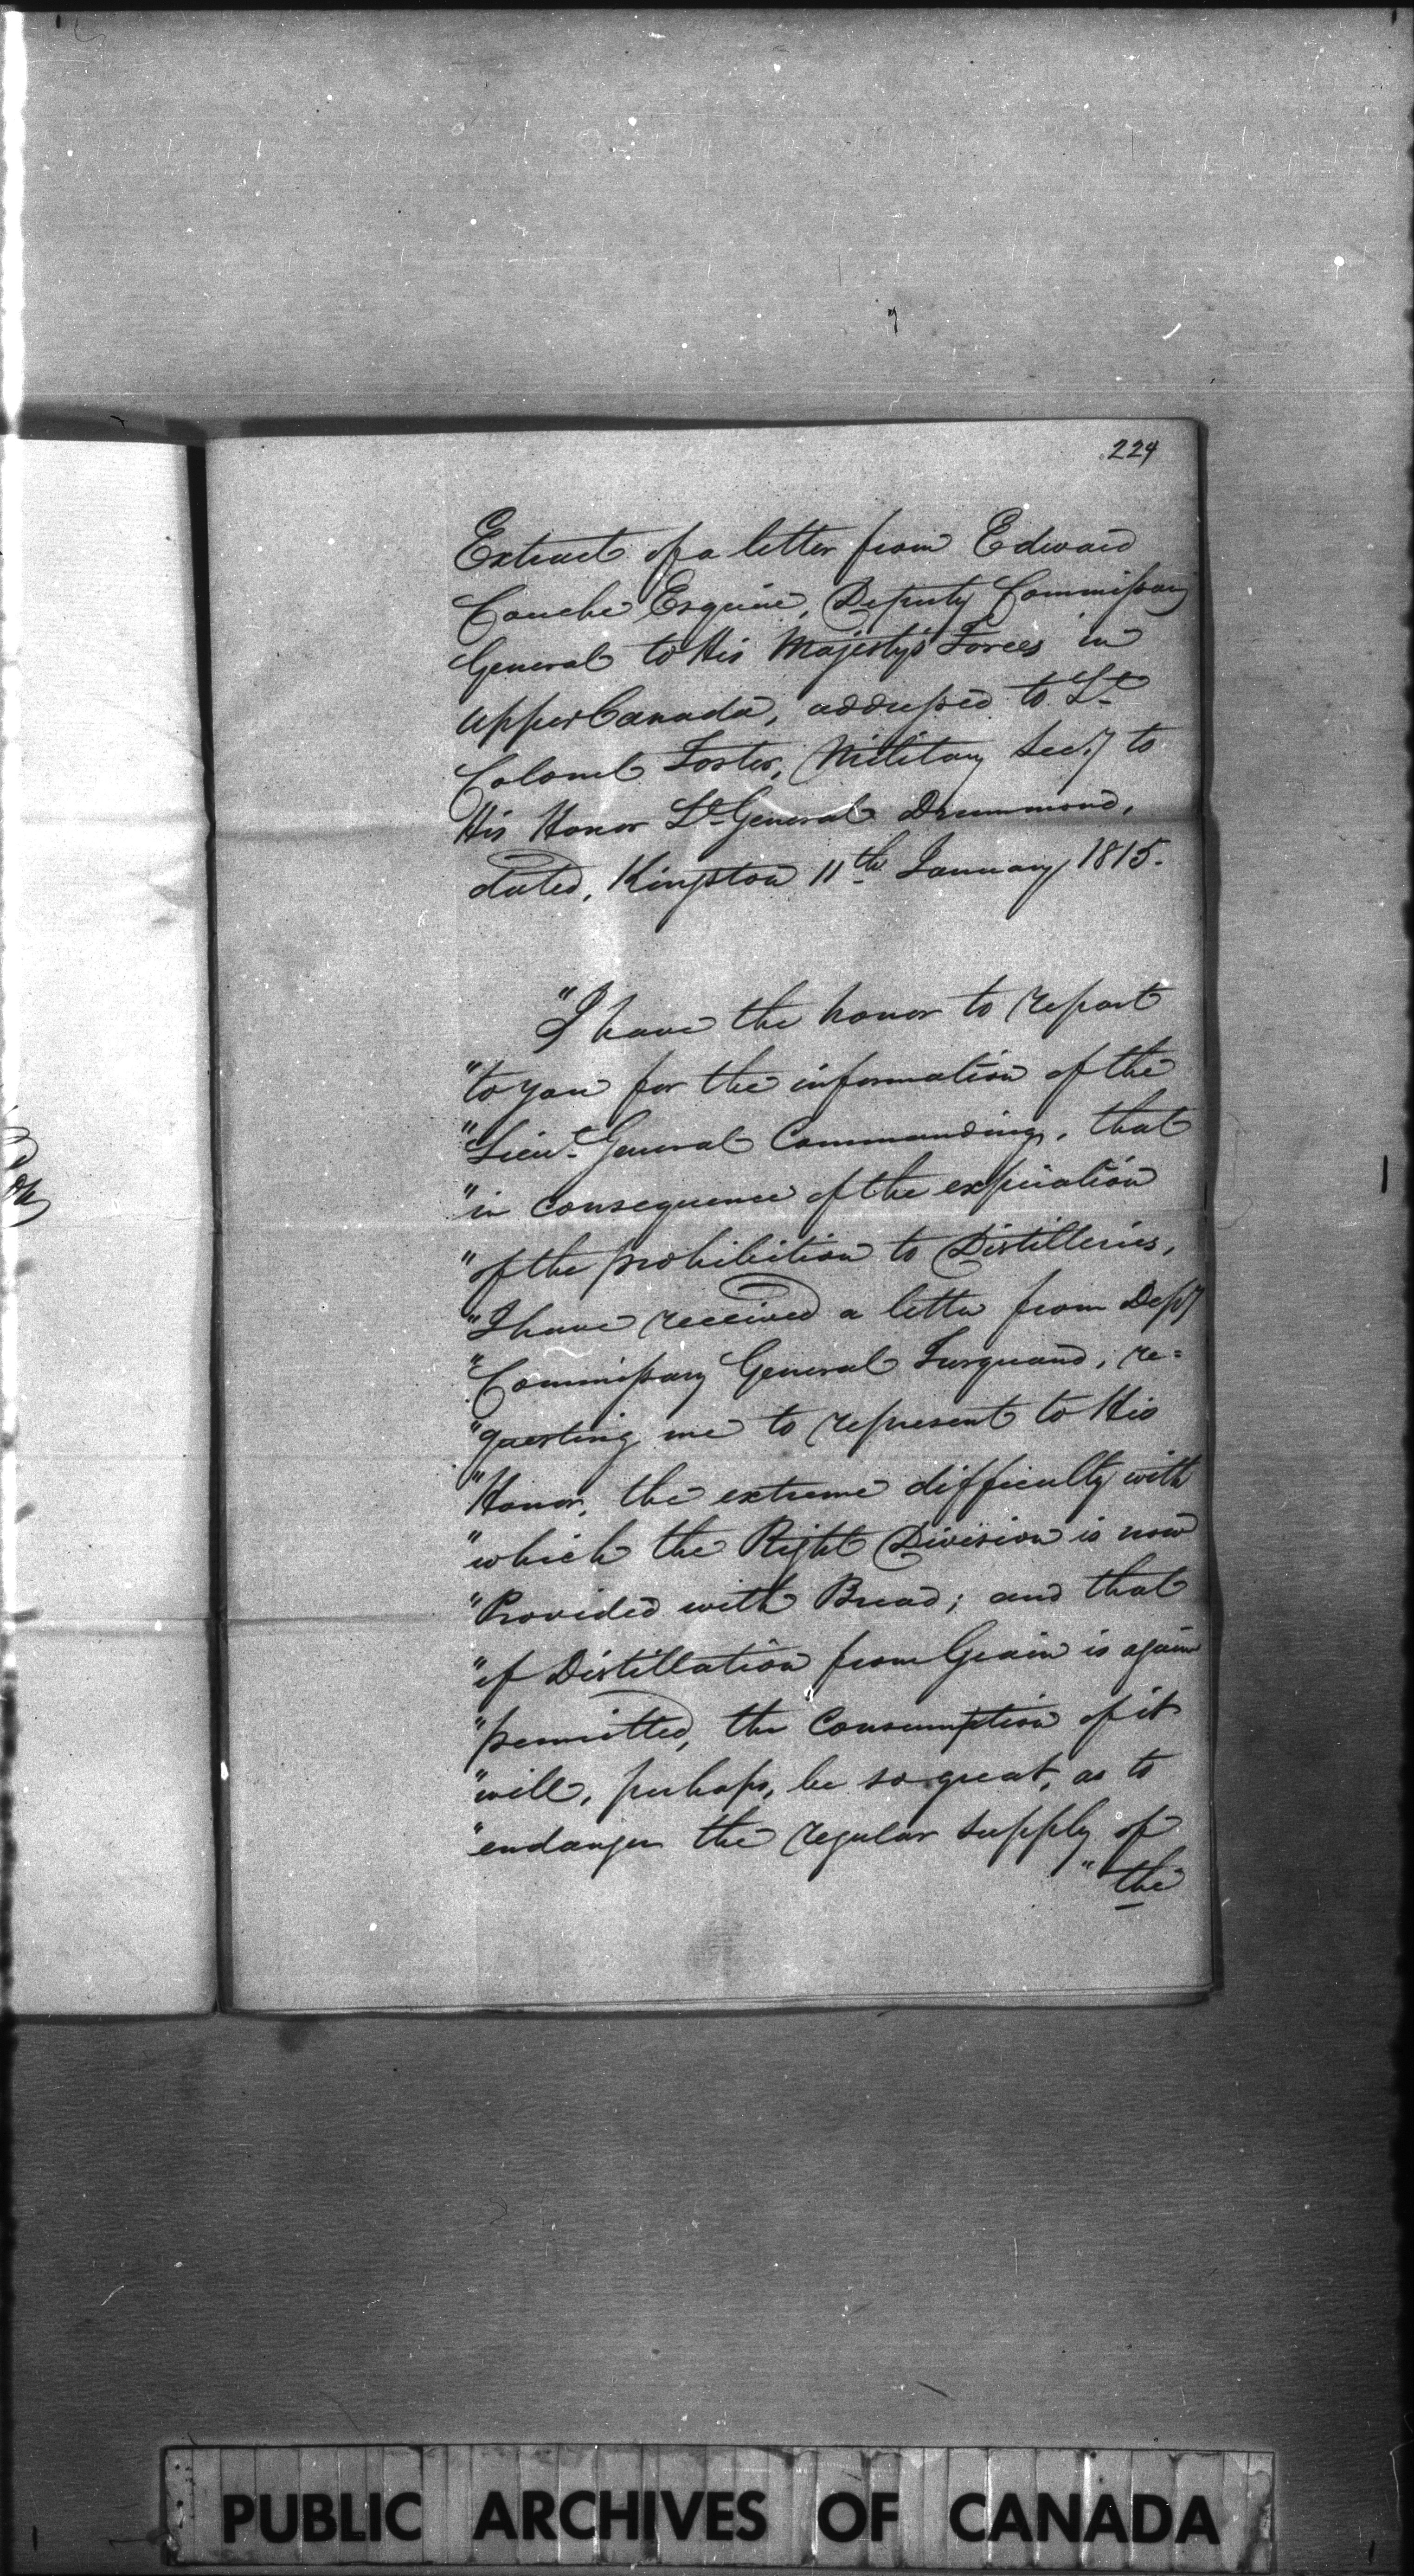 224
Extract of a letter from Edward
Couche Esquire, Deputy Commissary
General to His Majesty's Forces in
Upper Canada, addressed to Lt
Colonel Foster, Military Secy to
His Honor Lt General Drummond,
dated, Kingston 11th January 1815.
"I have the honor to report
"to you for the information of the
"Lieut General Commanding, that
"in consequence of the expiration
"of the prohibition to Distilleries,
"I have received a letter from Depy
"Commissary General Turquand, re=
"questing me to represent to His
"Honor, the extreme difficulty with
"which the Right Division is now
"Provided with Bread; and that
"if Distillation from Grain is again
"permitted, the Consumption of it
"will, perhaps, be so great, as to
"endanger the regular supply of
"the
PUBLIC ARCHIVES OF CANADA